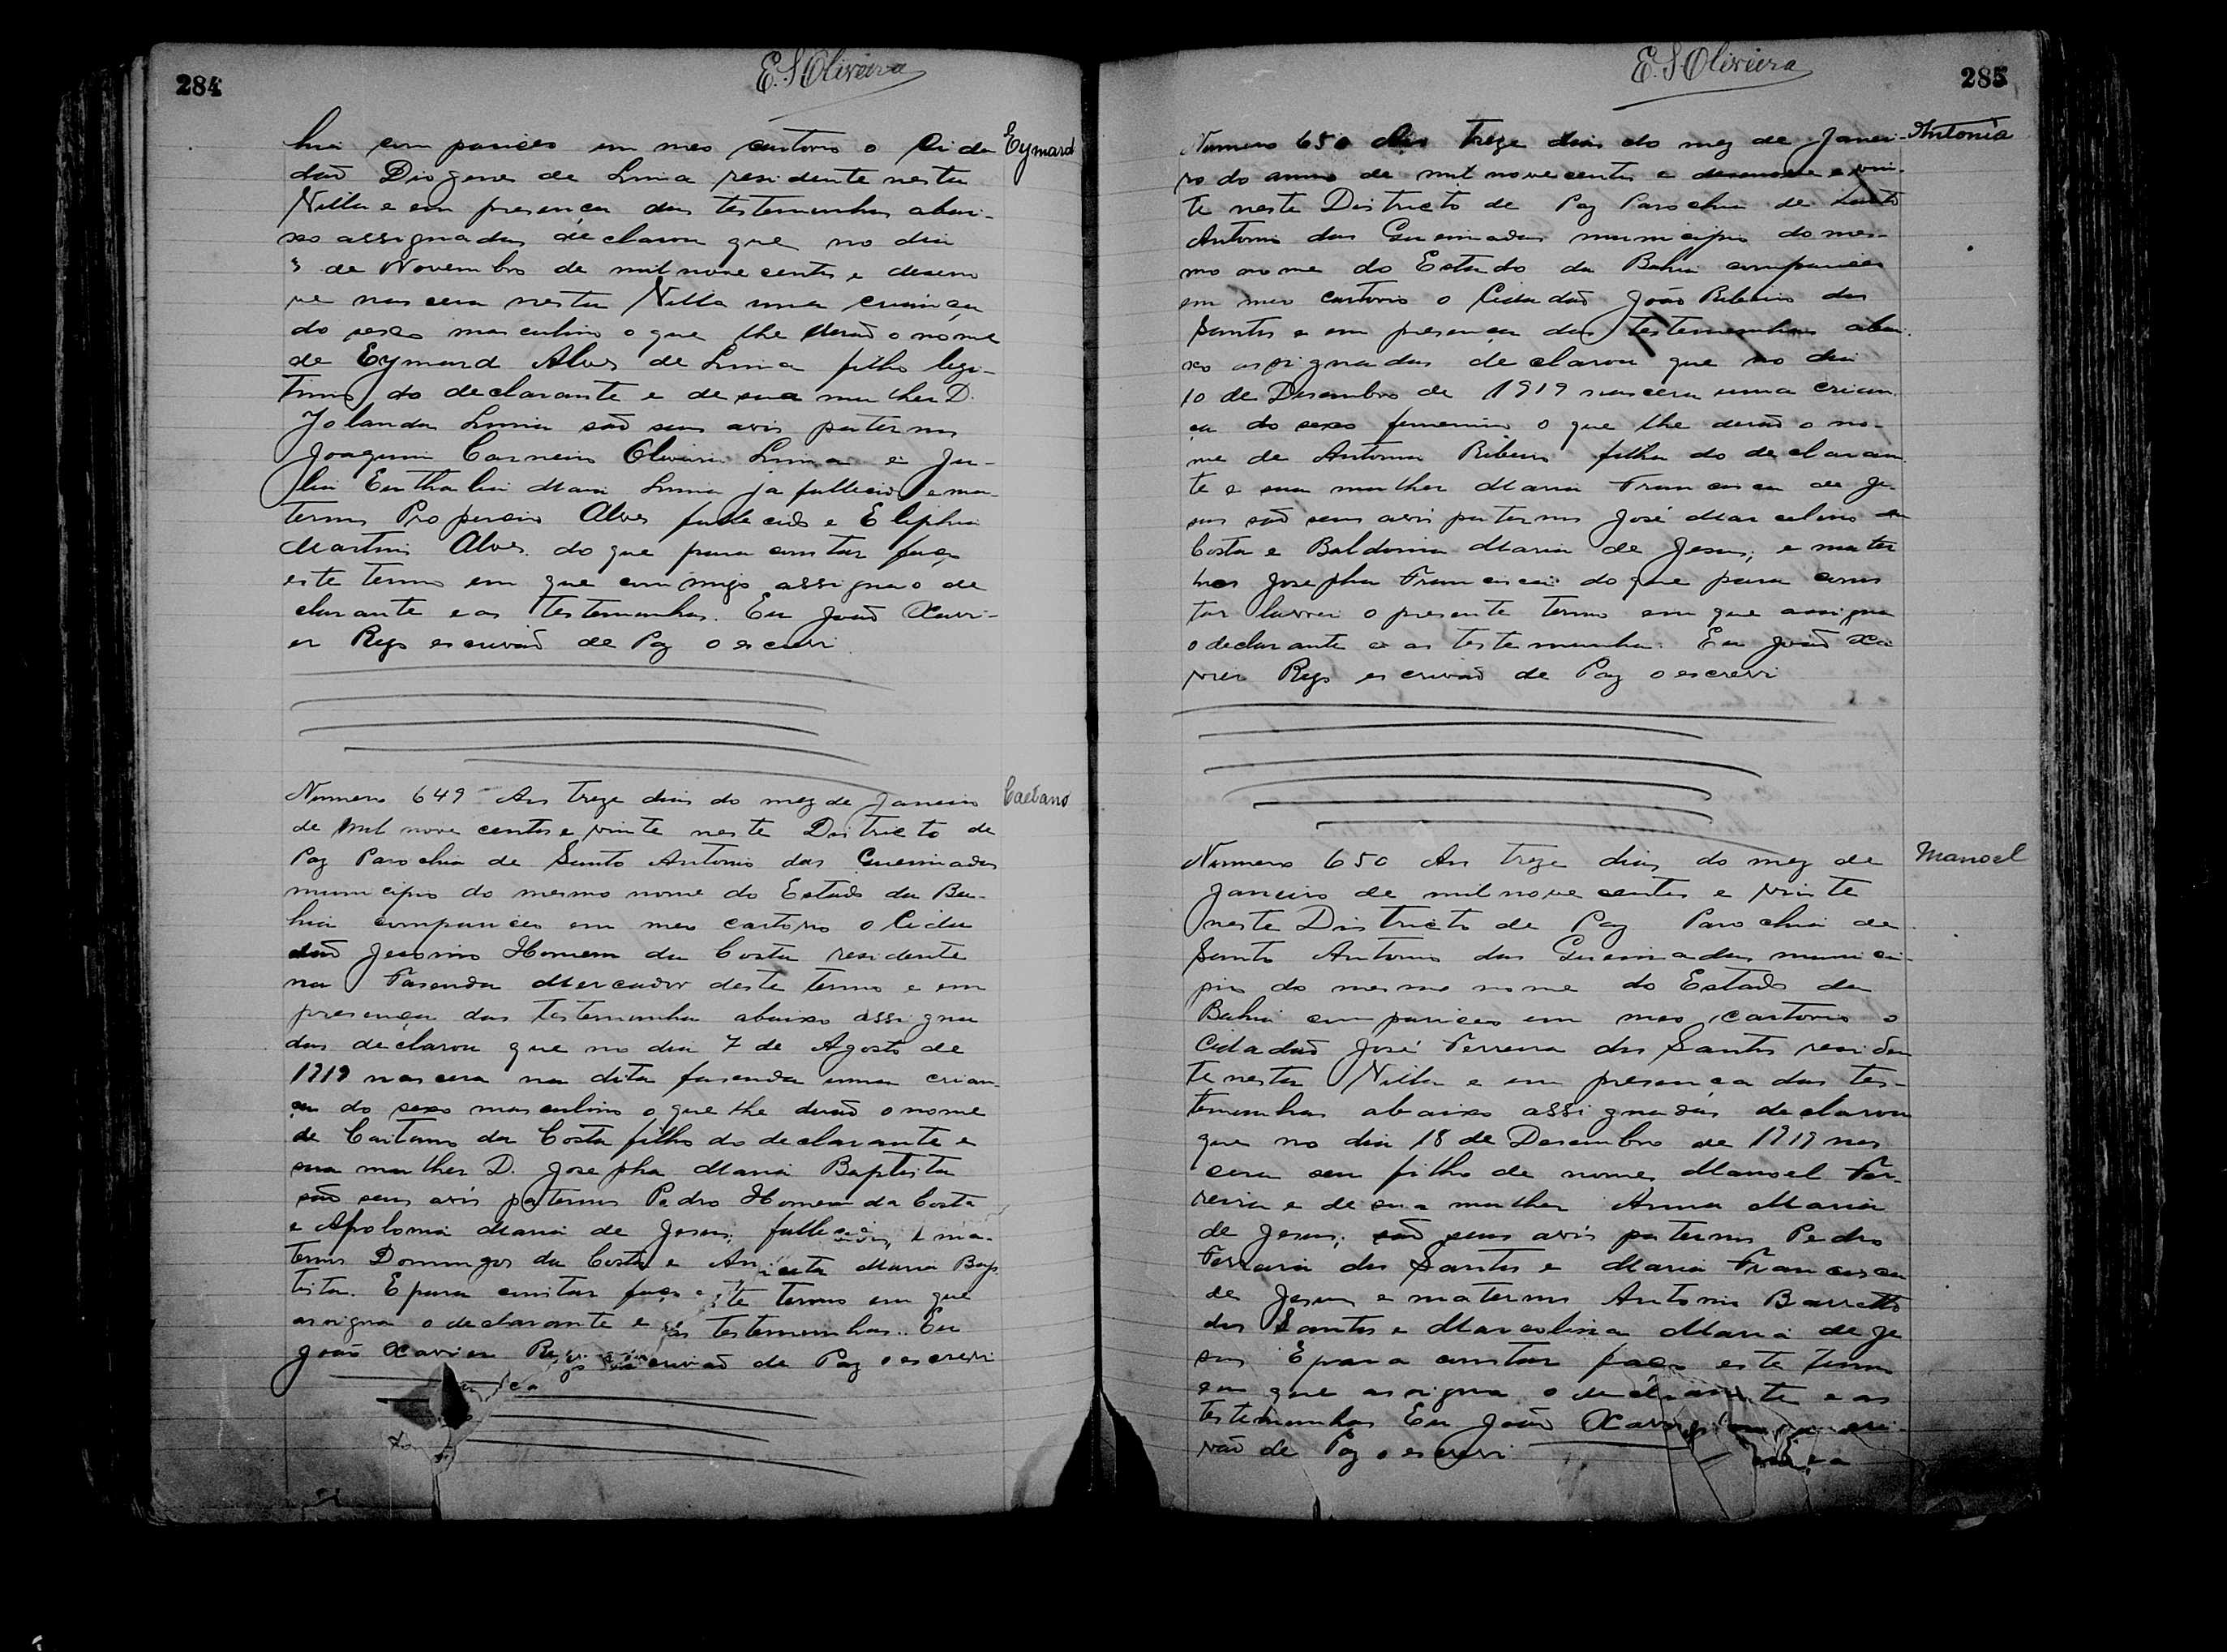 284
E. S. Oliveira
hia compareceo em meo cartorio o Cida
Eymard
daõ Diogenes de Lima residente nesta
Villa e em presença das testemunhas abai-
xo assignadas declarou que no dia
3 de Novembro de mil nove centos e deseno
ve nascera nesta Villa uma criança
do sexo masculino o que lhe deraõ o nome
de Eymard Alves de Lima filho legi-
timo do declarante e de sua mulher D.
Jolanda Lima saõ seus avós paternos
Joaquim Carneiro Oliveira Lima e Ju-
lia Euthalia Maria Lima ja fallecido e ma-
ternos Propercio Alves fallecido e Eliphia
Martins Alves. do que para constar faço
este termo em que commigo assigna o de
clarante e as testemunhas. Eu Joaõ Xavi-
er Rego escrivaõ de Paz o escrevi
Numero 649 Aos treze dias do mez de Janeiro
Caetano
de mil nove centos e vinte neste Districto de
Paz Parochia de Santo Antonio das Queimadas
municipio do mesmo nome do Estado da Ba-
hia compareceo em meo cartorio o Cida
daõ Jeronimo Homem da Costa residente
na Fasenda Mercador deste termo e em
presença das testemunhas abaixo assigna
das declarou que no dia 7 de Agosto de
1919 nascera na dita fasenda uma crian-
ça do sexo masculino o que lhe deraõ o nome
de Caitano da Costa filho do declarante e
sua mulher D. Josepha Maria Baptista
saõ seus avós paternos Pedro Homem da Costa
e Apolonia Maria de Jesus; fallecidos, e ma-
ternos Domingos da Costa e Aniceta Maria Bap
tista. E para constar faço este termo em que
assigna o declarante e as testemunhas.. Eu
Joaõ Xavier Rego escrivaõ de Paz o escrevi
E. S. Oliveira
285
Numero 650 Aos treze dias do mez de Janei-
Antonia
ro do anno de mil nove centos e desenove e vin-
te neste Districto de Paz Parochia de Santo
Antonio das Queimadas municipio do mes-
mo nome do Estado da Bahia compareceo
em meo cartorio o Cidadaõ Joaõ Ribeiro dos
Santos e em presença das testemunhas abai
xo assignadas declarou que no dia
10 de Desembro de 1919 nascera uma crian
ça do sexo femenino o que lhe deraõ o no-
me de Antonia Ribeiro filha do declaran
te e sua mulher Maria Francisca de Je
sus saõ seus avós paternos José Marcelino da
Costa e Baldoina Maria de Jesus; e mater
nos Josepha Francisca: do que para cons
tar lavrei o presente termo em que assigna
o declarante e as testemunha. Eu Joaõ Xa
vier Rego escrivaõ de Paz o escrevi
Numero 650 Aos treze dias do mez de
Manoel
Janeiro de mil nove centos e vinte
neste Districto de Paz Parochia de
Santo Antonio das Queimadas munici-
pio do mesmo nome do Estado da
Bahia compareceo em meo cartorio o
Cidadaõ José Ferreira dos Santos residen
te nesta Villa e em presença das tes-
temunhas abaixo assignadas declarou
que no dia 18 de Desembro de 1919 nas
cera seu filho de nome Manoel Fer-
reira e de sua mulher Anna Maria
de Jesus; saõ seus avós paternos Pedro
Ferreira dos Santos e Maria Francisca
de Jesus e maternos Antonio Barretto
dos Santos e Marcolina Maria de Je
sus E para constar faço este termo
em que assigna o declarante e as
testemunhas Eu Joaõ Xavier escri
vaõ de Paz o escrevi